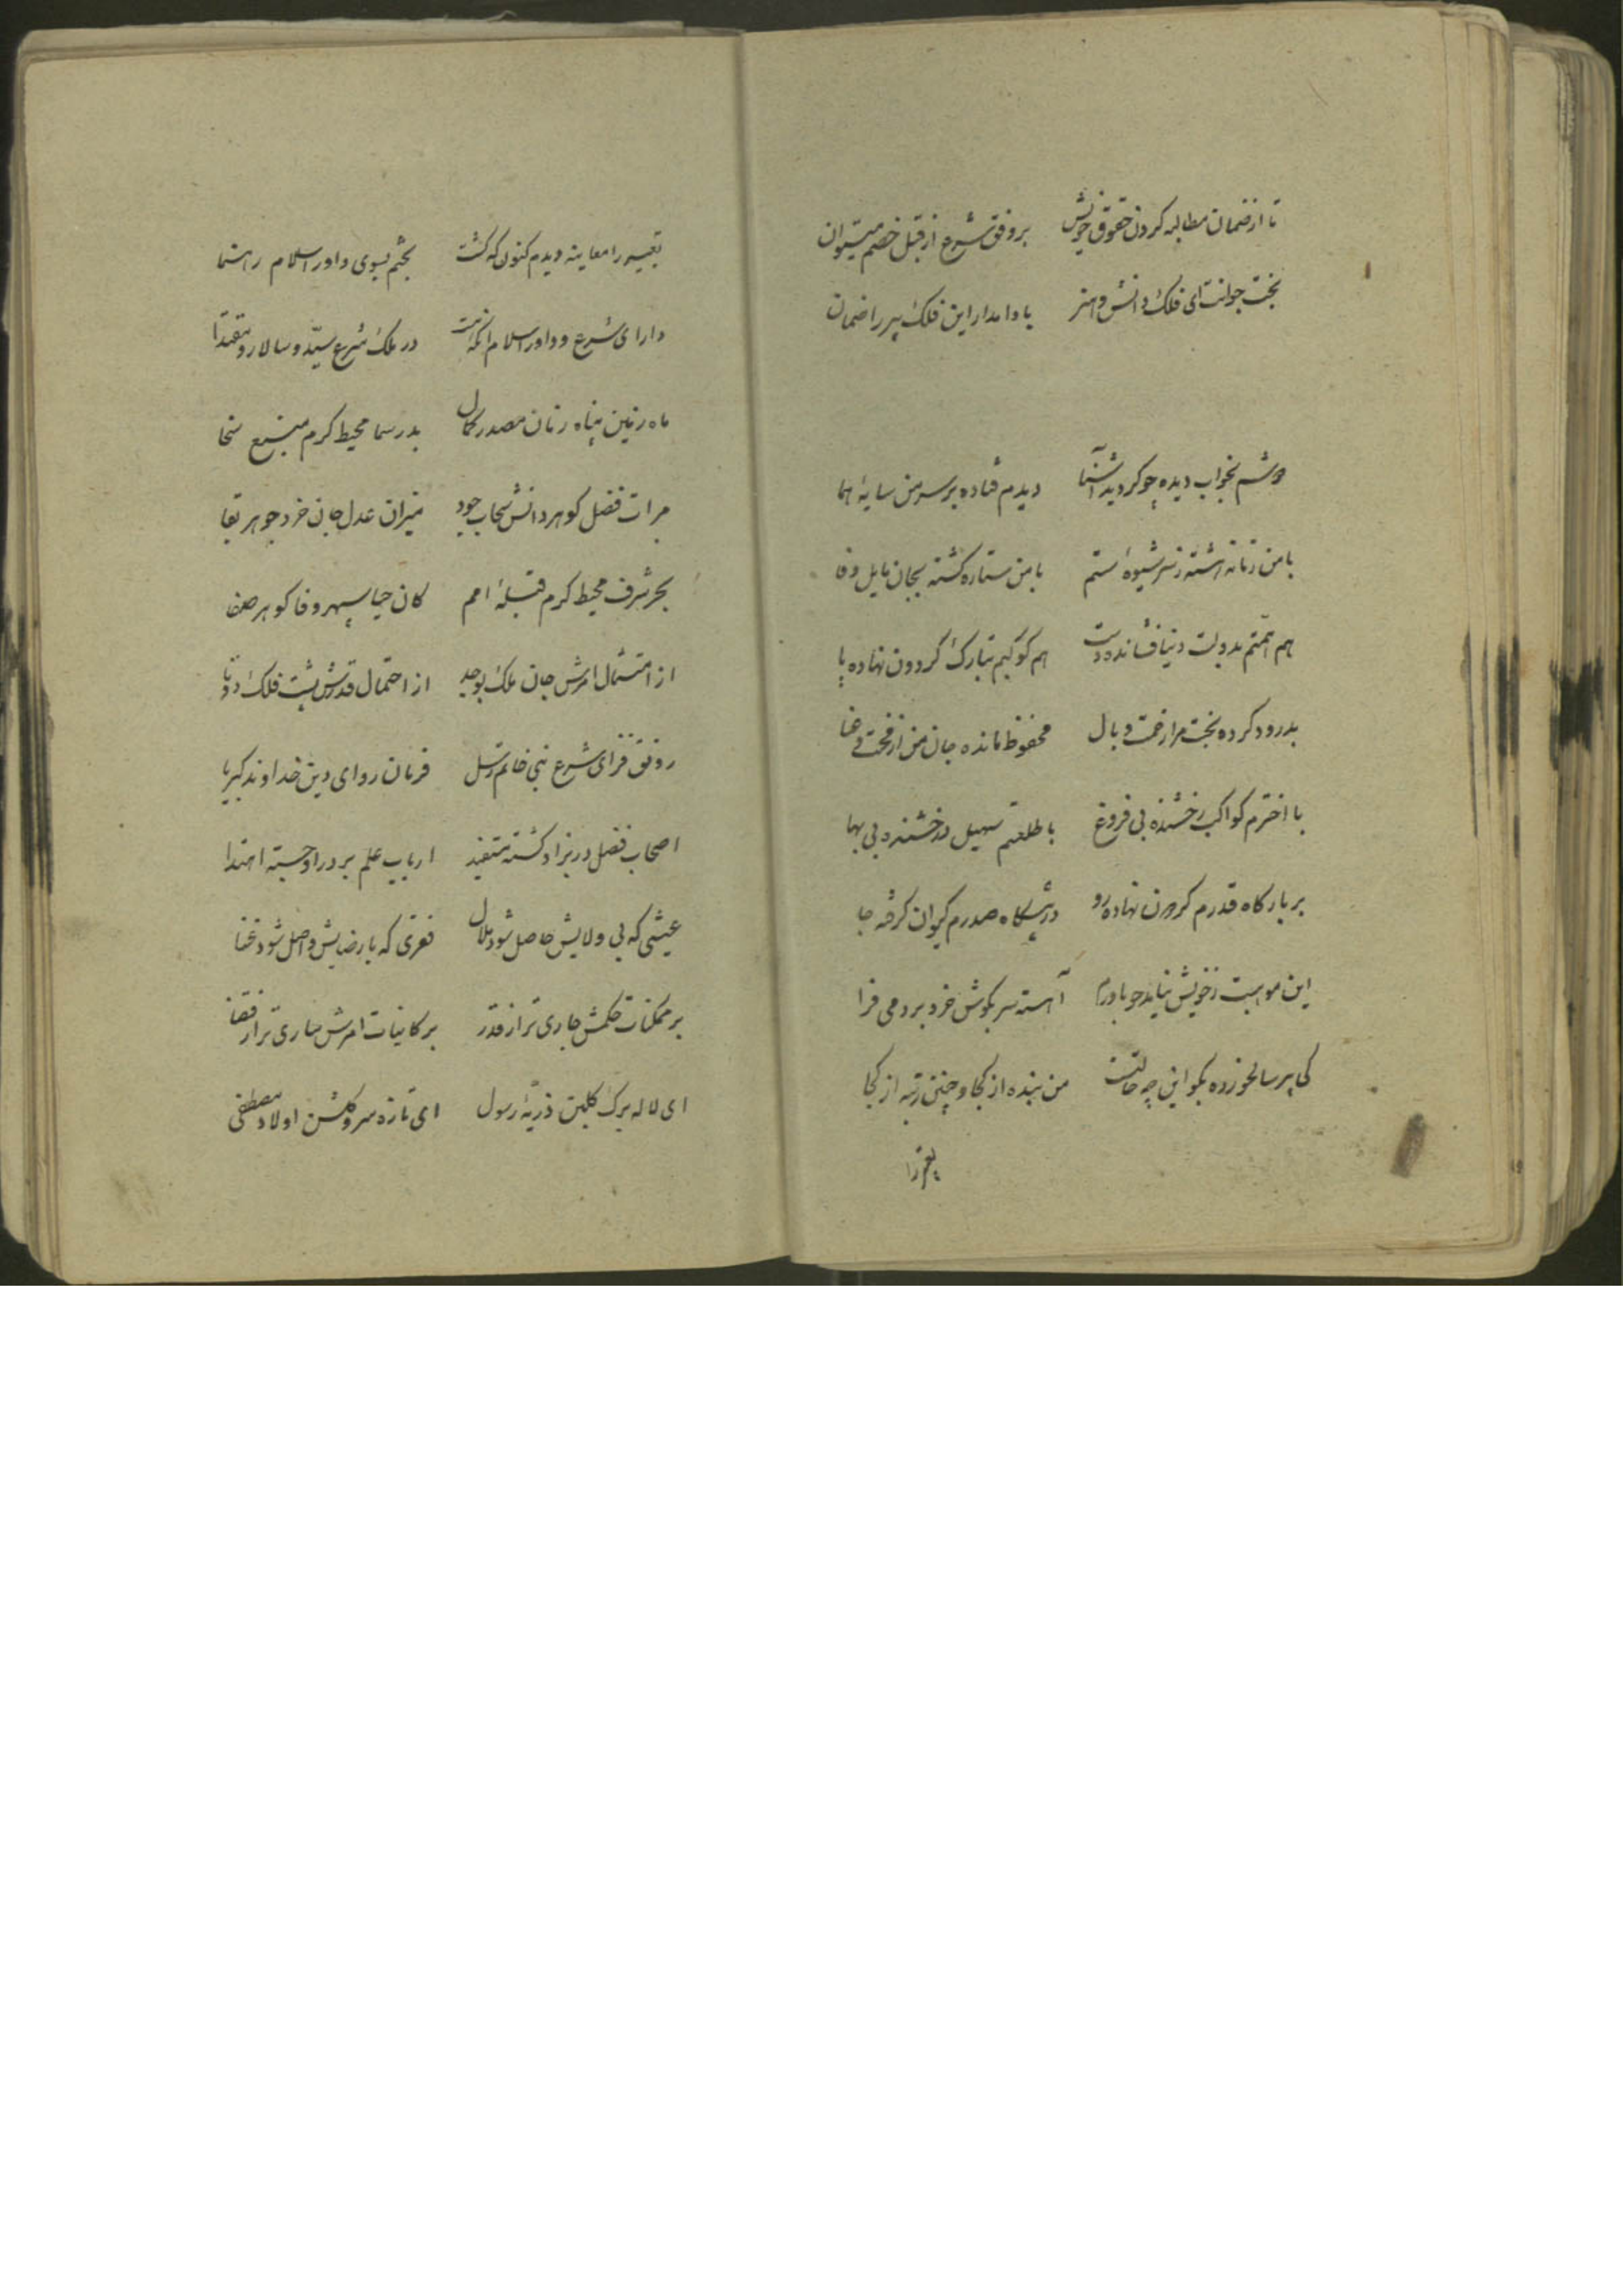 تا از ضمان مطالبه کردن حقوق خویش بر وفق شرع از قبل خصم میتوان
بخت جوانت ای فلک دانش و هنر بادا مدار این فلک پیر را ضمان
دوشم بخواب دیده چو کردید آشنا دیدم فتاده بر سر من سایهٔ هما
با من زمانه هشته ز سر شیوهٔ ستم با من ستاره کشته بجان مایل وفا
هم همتم بدولت دنیا فشانده دست هم کوکبم بتارک گردون نهاده پا
بدرود کرده بخت مرا زحمت وبال محفوظ مانده جان من از محنت
با اخترم کواکب رخشنده بی فروغ با طلعتم سهیل درخشنده بی بها
بر بارکاه قدرم کردون نهاده رو در پیشکاه صدرم کیوان کرفته جا
این موهبت ز خویش نیامد چو باورم آهسته سر بکوش خرد بردمی فرا
کی پیر سالخورده بکو این چه حالتست من بنده از کجا و چنین رتبه از کجا
تعبیر را
تعبیر را معاینه دیدم کنون که کشت بختم بسوی داور اسلام رهنما
دارای شرع و داور اسلام آنکه هست در ملک شرع سید و سالار و مقتدا
ماه زمین پناه زمان مصدر کمال بدر سما محیط کرم منبع سخا
مرات فضل کوهر دانش سحاب جود میزان عدل جان خرد جوهر بقا
بحر شرف محیط کرم قبلهٔ امم کان حیا سپهر وفا کوهر صفا
از امتثال امرش جان ملک بوجد از احتمال قدرش پشت فلک دوتا
رونق فزای شرع نبی خاتم رسل فرمان روای دین خداوند کبریا
اصحاب فضل در بر او کشته مستفید ارباب علم بر در او جسته اهتدا
عیشی که بی ولایش حاصل شود ملال فقری که با رضایش واصل شود غنا
بر ممکنات حکمش جاری تر از قدر بر کاینات امرش ساری تر از قضا
ای لاله برک کلبن ذریهٔ رسول ای تازه سرو کلشن اولاد مصطفی